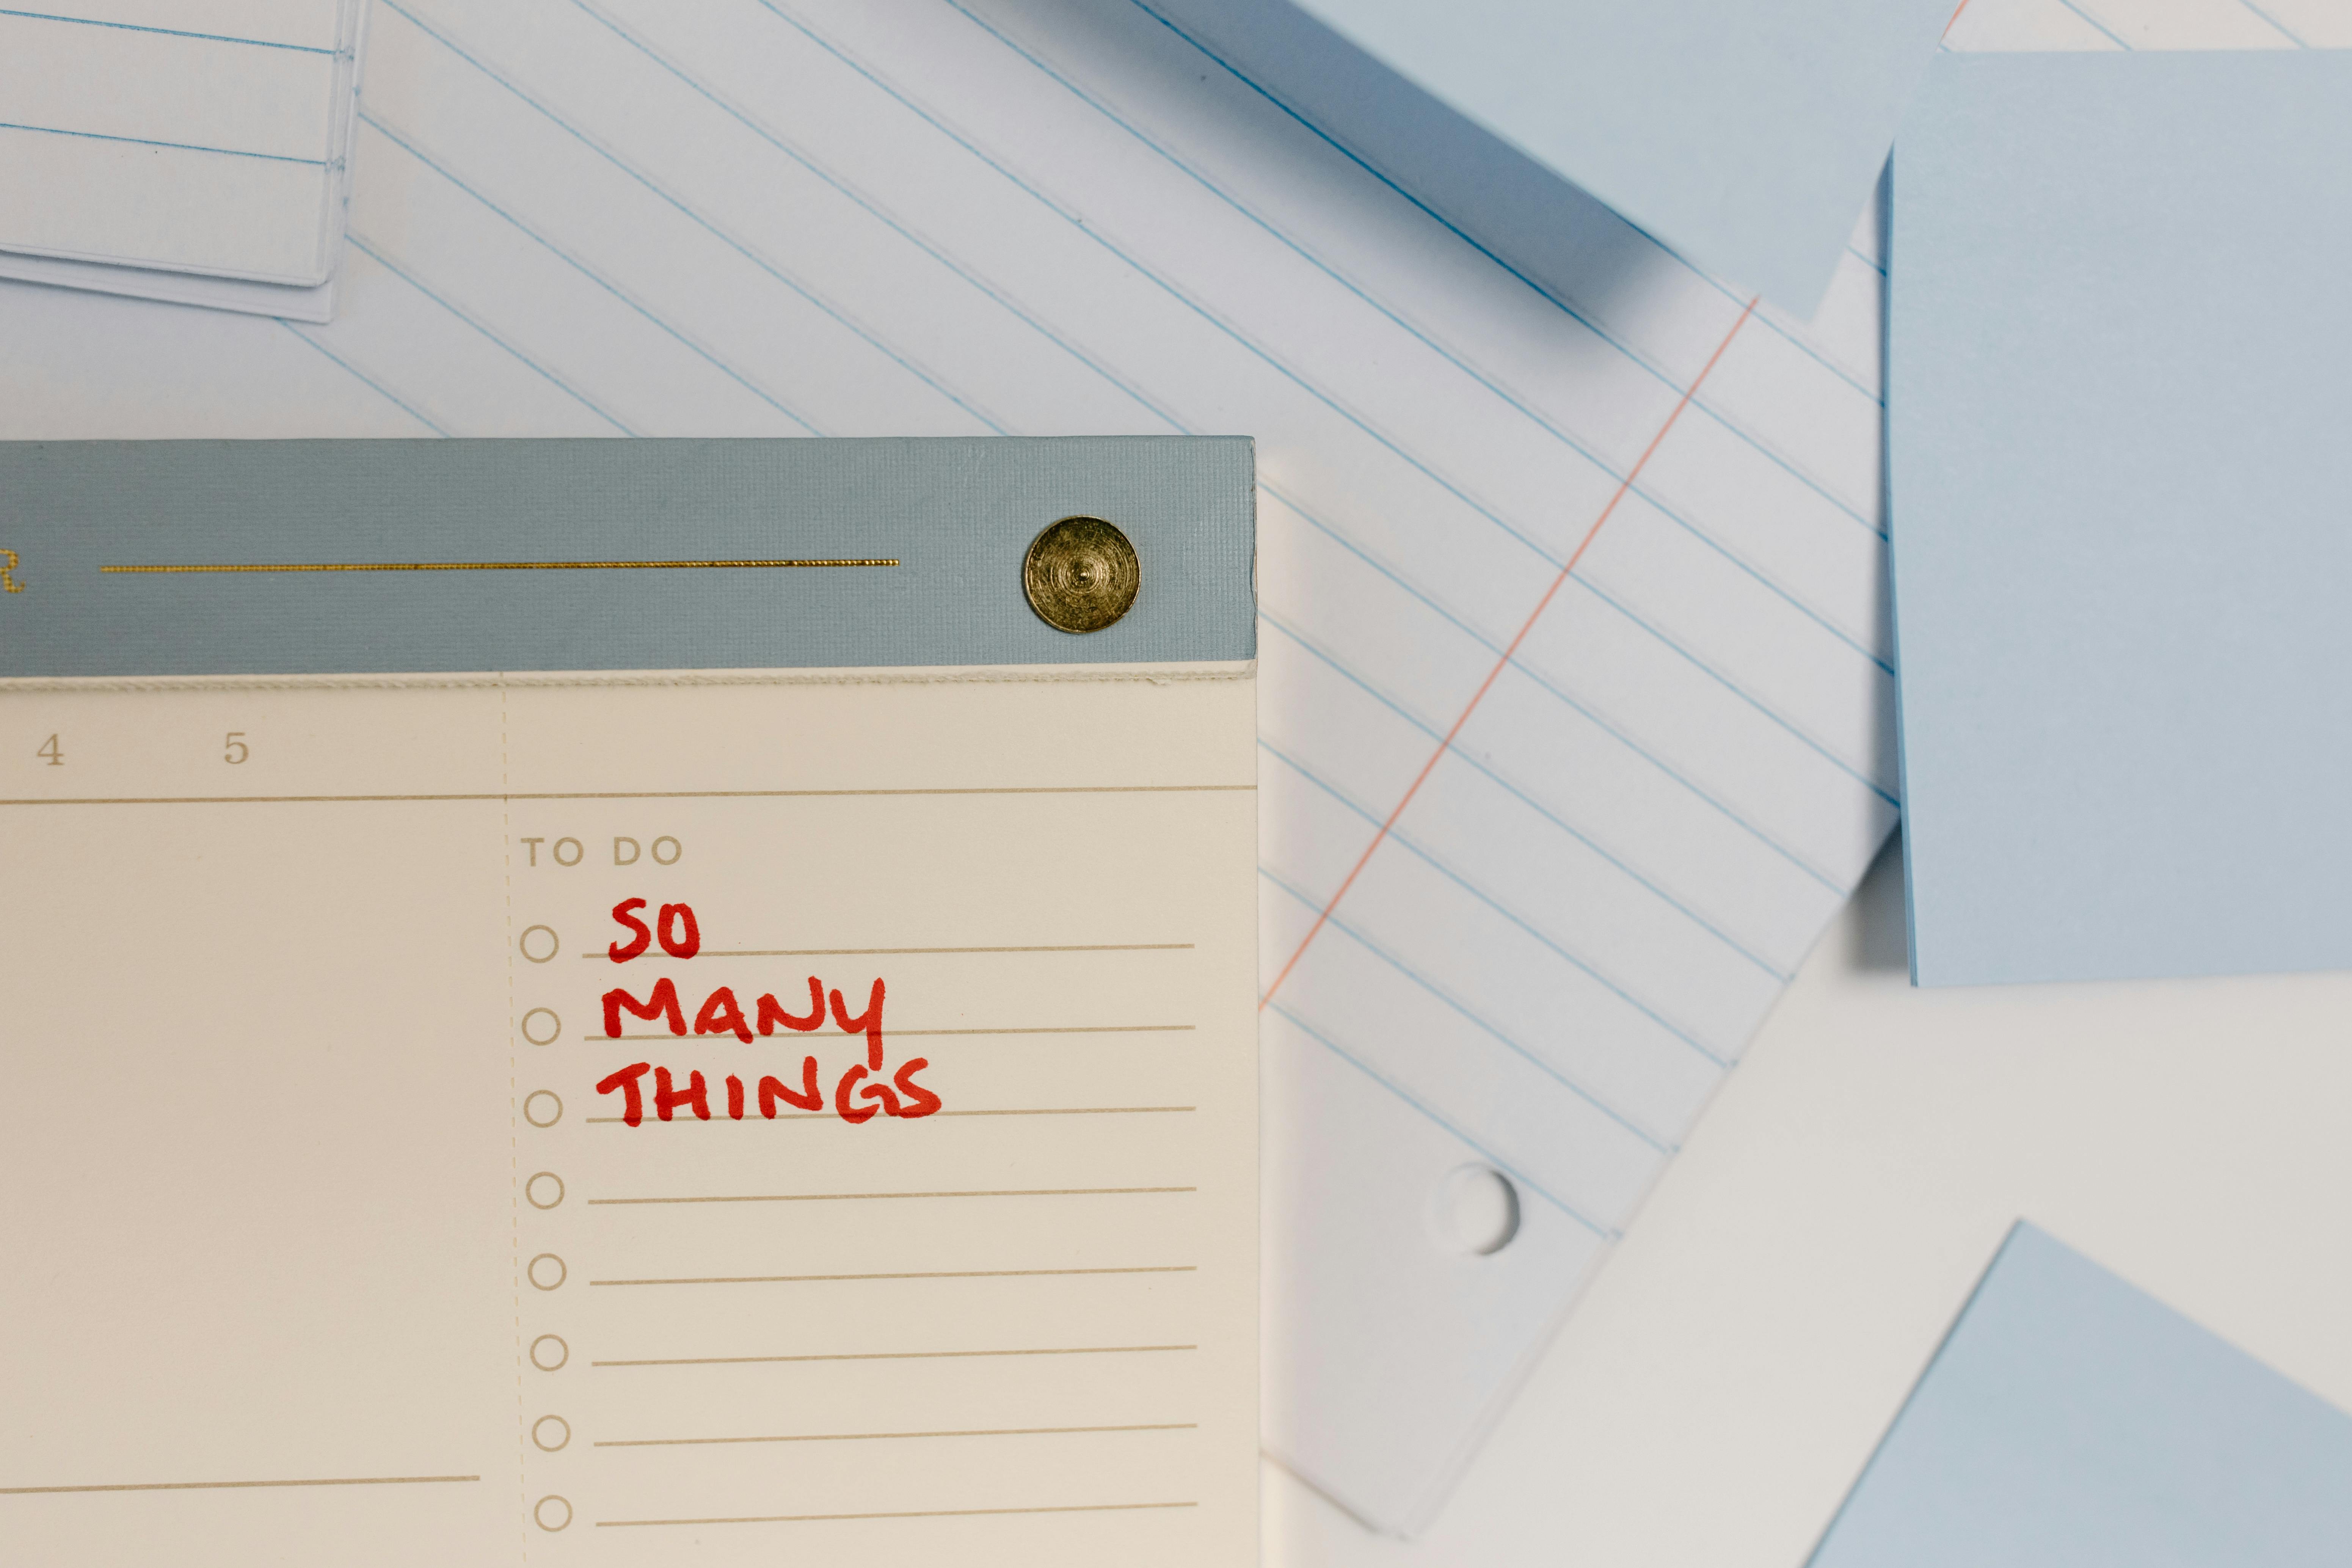 R
4 5
TO DO
SO
MANY
THINGS